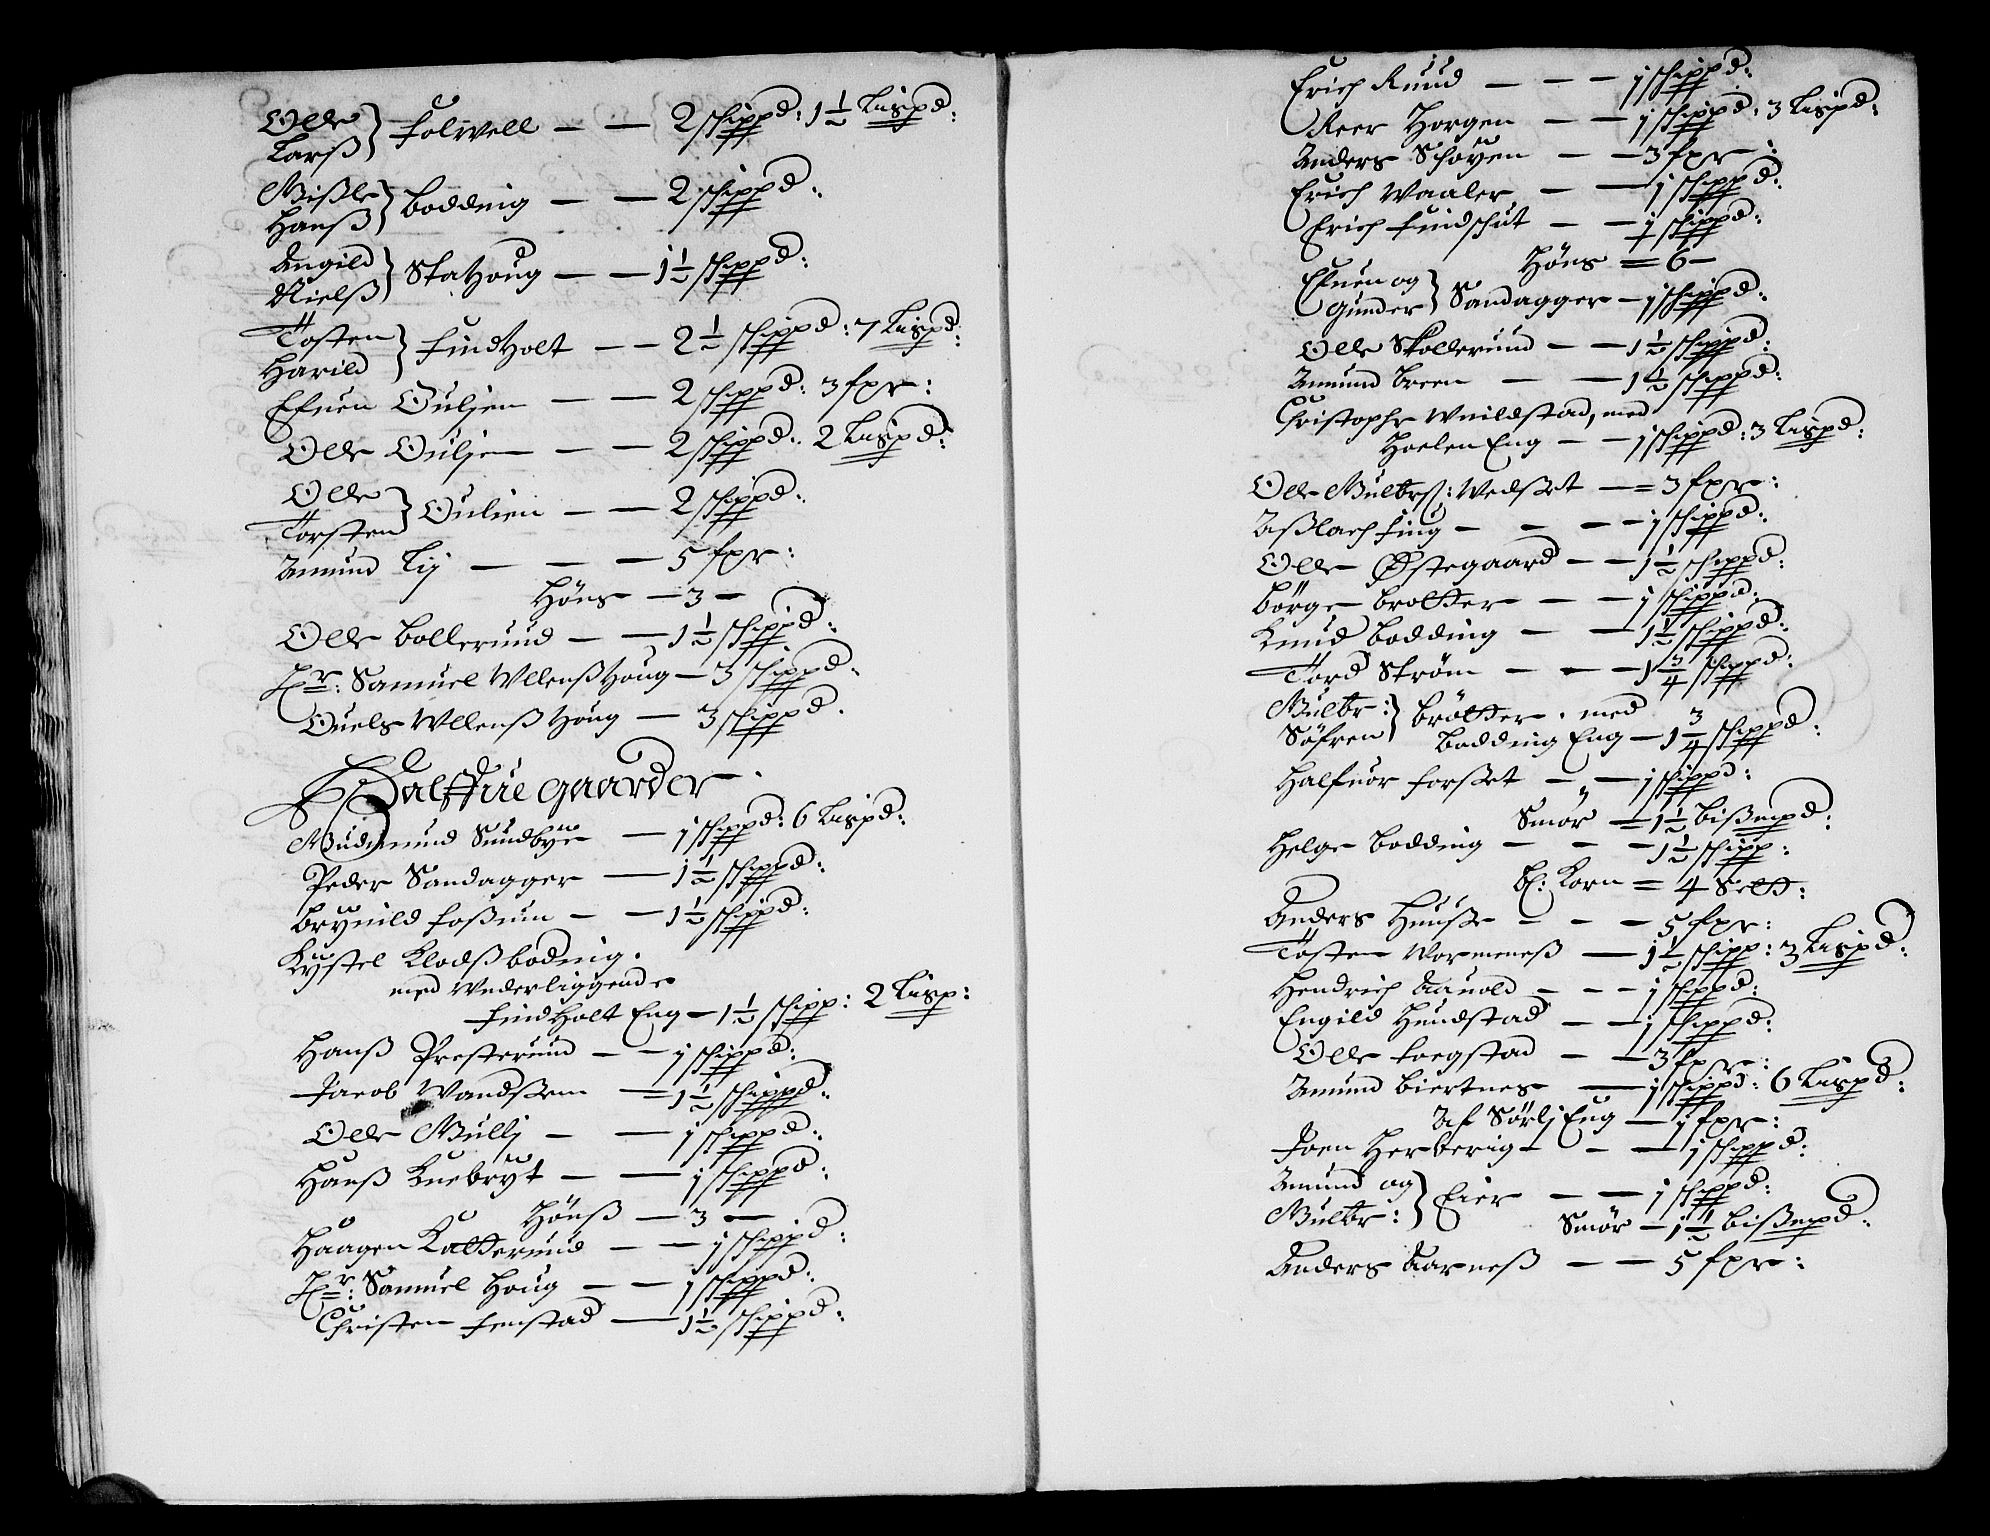 Olle } Folwell — — 2 schippd: 1½ Lispd:
Larß
Mißle } Bodding — — 2 schippd:
Hanß
Angild } Skathoug — — 1½ schippd:
Nielß
Tosten } Findholt — — 2½ schippd: 7 Lispd:
Harild
Efuen Ouljen — — 2 schippd: 3 fxr:
Olle Ouljen — — 2 schippd: 2 Lispd:
Olle } Oulien — — 2 schippd:
Torsten
Amund Lij — — — 5 fxr:
Höns — 3 —
Olle Bollerund — — 1½ schippd:
Hr: Samuel Ullenßhoug — 3 schippd:
Ouels Ullenßhoug — 3 schippd.
Halffue gaarder.
Gudmund Sundbye — 1 schippd: 6 Lispd:
Peder Sandagger — 1½ schippd:
Brynild Foßum — — 1½ schippd:
Kystel Klodßboding.
med Underliggende
Findholt Eng — 1½ schipp: 2 Lisp:
Hanß Presterund — — 1 schippd:
Jacob Wandsem — 1½ schippd:
Olle Mullj — — 1 schippd:
Hanß Knebryt — — 1 schippd:
Hönß — 3 —
Haagen Katterund — — 1 schippd:
Hr: Samuel Houg — — 1 schippd:
Christen Fenstad — 1½ schippd:
Erich Ruud — — — 1 schippd:
Reer Horgen — — 1 schippd: 3 Lispd:
Anders Schøyen — — 3 fxr:
Erich Waaler — — 1 schippd:
Erich Findschut — — 1 schippd:
Höns = 6 —
Efuen og } Sandagger — 1 schippd:
Gunder
Olle Skollerund — — 1½ schippd:
Amund Breen — — 1½ schippd:
Christopher Unildstad, med
Hoelen Eng — — 1 schippd: 3 Lispd:
Olle Gulbrs: Wedßet — = 3 fxr:
Aßlach Fing — — — 1 schippd:
Olle Østegaard — — 1½ schippd:
Börge Brotter — — 1 schippd:
Knud Bodding — — 1½ schippd:
Tord Ström — — — 1¾ schippd:
Gulbr: } Brötter. med
Söfren Bodding Eng — 1¾ schippd:
Halfuor Forßet — — 1 schippd:
Smör = 1½ bißmpd:
Helge Bodding — — — 1½ schipp:
bl: Korn = 4 Sett:
Anders Huuße — — — 5 fxr:
Tosten Wormeneß — 1½ schipp: 3 Lispd:
Hendrich Aauold — — — 1 schippd:
Engild Hundstad — — 1 schippd:
Olle Foegstad — — 3 fxr:
Amund Biertnes — 1 schippd: 6 Lispd:
Af Sörlj Eng — 1 fxr:
Joen Herberig — — — 1 schippd:
Amund og } Eier — — 1 schippd:
Gulbr:
Smör — 1½ bißmpd:
Anders Aarneß — — 5 fxr: